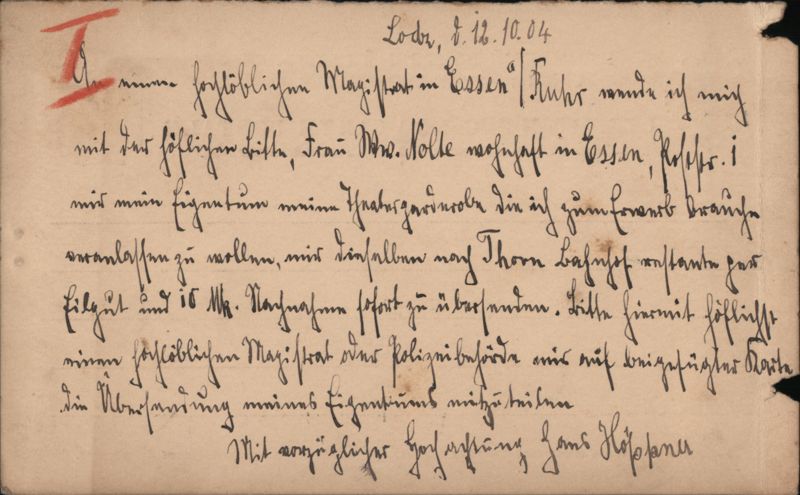 I
Lodz, d. 12.10.04
An einen hochlöblichen Magistrat in Essen a/Ruhr wende ich mich
mit der höflichen Bitte, Frau Ww. Nolte wohnhaft in Essen, Poststr. 1
mir mein Eigentum meine Theatergarderobe die ich zum Erwerb brauche
veranlassen zu wollen, mir dieselben nach Thorn Bahnhof restante per
Eilgut und 10 Mk. Nachnahme sofort zu übersenden. Bitte hiermit höflichst
einen hochlöblichen Magistrat oder Polizeibehörde mir auf beigefügter Karte
die Übersendung meines Eigentums mitzuteilen
Mit vorzüglicher Hochachtung Hans Höppner